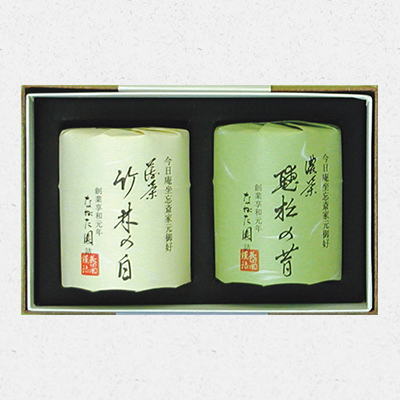 今日庵坐忘斎家元御好
濃茶
聴松の昔
創業享和元年
ながた園
詰
今日庵坐忘斎家元御好
薄茶
竹林の白
創業享和元年
ながた園
詰